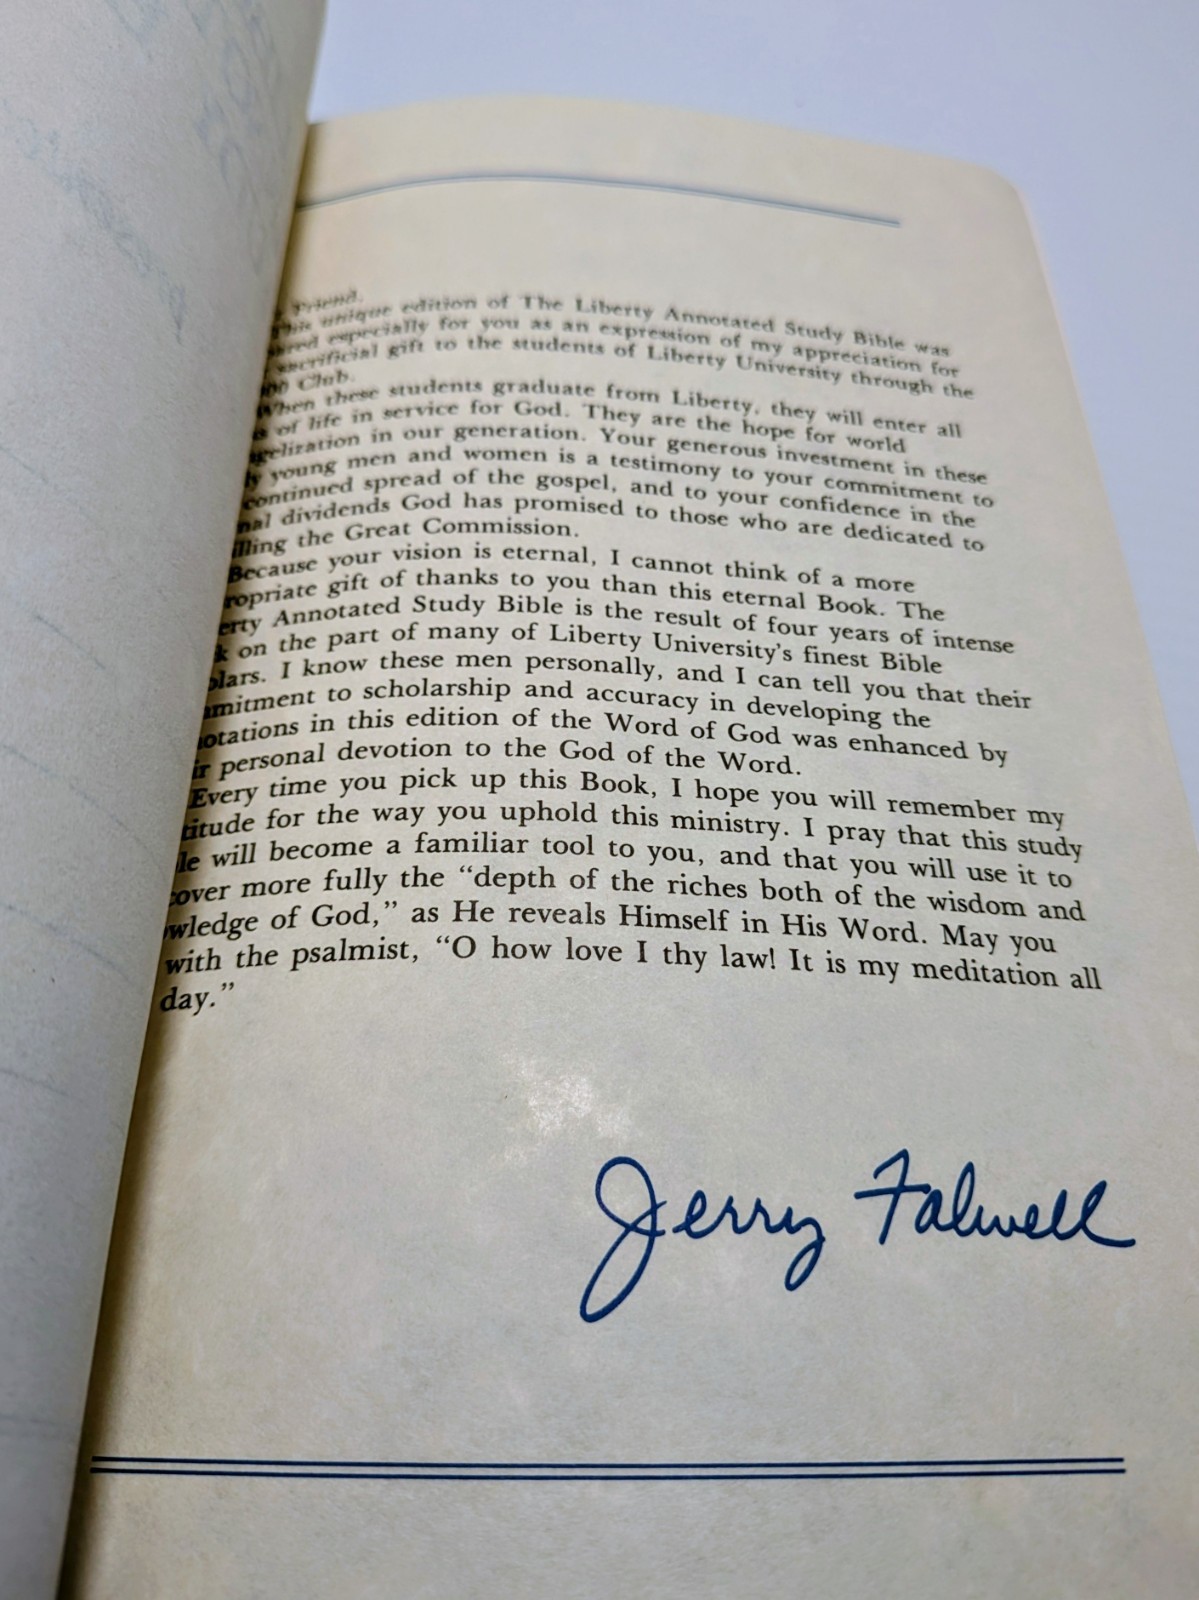 Friend,
This unique edition of The Liberty Annotated Study Bible was
especially for you as an expression of my appreciation for
sacrificial gift to the students of Liberty University through the
Club.
When these students graduate from Liberty, they will enter all
of life in service for God. They are the hope for world
in our generation. Your generous investment in these
young men and women is a testimony to your commitment to
continued spread of the gospel, and to your confidence in the
dividends God has promised to those who are dedicated to
the Great Commission.
Because your vision is eternal, I cannot think of a more
gift of thanks to you than this eternal Book. The
Annotated Study Bible is the result of four years of intense
on the part of many of Liberty University's finest Bible
I know these men personally, and I can tell you that their
to scholarship and accuracy in developing the
in this edition of the Word of God was enhanced by
personal devotion to the God of the Word.
Every time you pick up this Book, I hope you will remember my
for the way you uphold this ministry. I pray that this study
will become a familiar tool to you, and that you will use it to
more fully the “depth of the riches both of the wisdom and
of God,” as He reveals Himself in His Word. May you
with the psalmist, “O how love I thy law! It is my meditation all
day.”
Jerry Falwell